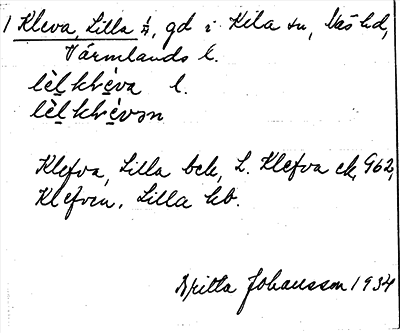 1 Kleva, Lilla 1/4, gd i Kila sn, Näs hd,
Värmlands l.
lèl kléva l.
lèl klévən
Klefva, Lilla bek, L. Klefva ek, 962,
Klefven, Lilla kb.
Britta Johansson 1934